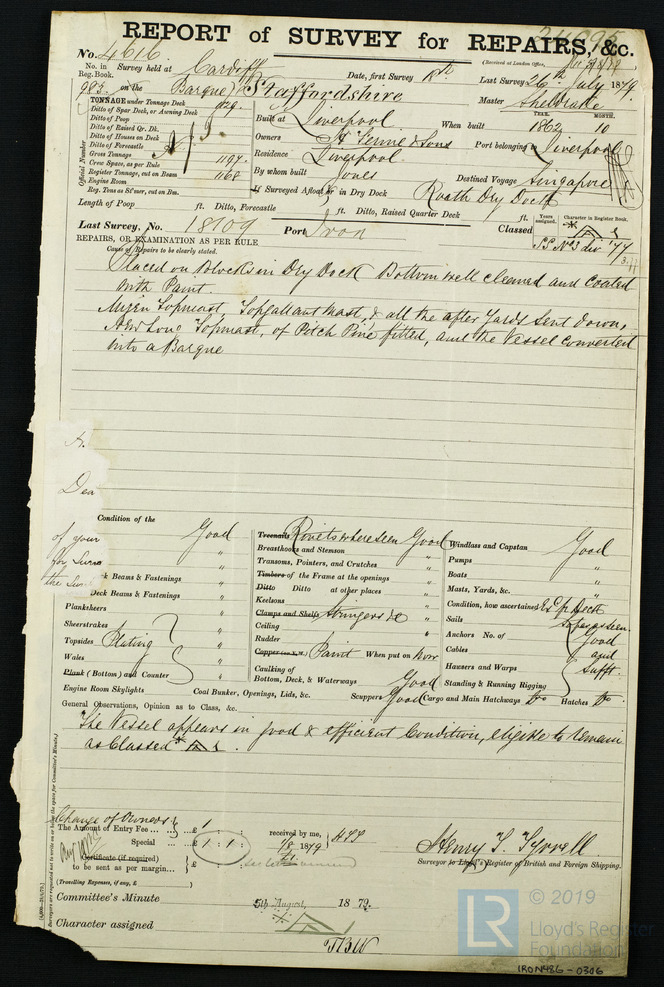 REPORT of SURVEY for REPAIRS, &c.
No. 4616
(Received at London Office,
No. in Reg. Book. Survey held at Cardiff Date, first Survey 18th Last Survey 26th July 1879.
983. on the Barque Staffordshire Master Sheldrake
TONNAGE under Tonnage Deck 1129.
Ditto of Spar Deck, or Awning Deck
Ditto of Poop
Ditto of Raised Qr. Dk.
Ditto of Houses on Deck
Ditto of Forecastle
Gross Tonnage 1197.
Crew Space, as per Rule
Register Tonnage, cut on Beam 1168
Engine Room
Reg. Tons as St'mr, cut on Bm.
Official Number
Built at Liverpool When built YEAR. 1862 MONTH. 10
Owners H. Fernie & Sons Port belonging to Liverpool
Residence Liverpool
By whom built Jones Destined Voyage Singapore
If Surveyed Afloat or in Dry Dock Roath Dry Dock
Length of Poop ft. Ditto, Forecastle ft. Ditto, Raised Quarter Deck ft.
Years assigned. Character in Register Book.
Last Survey, No. 18109 Port Iron Classed
S.S. No 3 div '77
REPAIRS, OR EXAMINATION AS PER RULE
Cause of Repairs to be clearly stated.
Placed on blocks in Dry Dock Bottom well cleaned and Coated
with Paint.
Mizen Topmast, Topgallant Mast, & all the after Yards sent down,
New Long Topmast, of Pitch Pine fitted, and the Vessel converted
into a Barque
Dea
of your
for Surve
the Sur
Condition of the Good
ck Beams & Fastenings "
Deck Beams & Fastenings "
Planksheers "
Sheerstrakes
Topsides Plating
Wales
Plank (Bottom) and Counter
Engine Room Skylights
Treenails Rivets where seen Good
Breasthooks and Stemson "
Transoms, Pointers, and Crutches "
Timbers of the Frame at the openings "
Ditto Ditto at other places "
Keelsons "
Clamps and Shelfs Stringers &c "
Ceiling "
Rudder "
Copper (or Y.M.) Paint When put on Now
Caulking of Bottom, Deck, & Waterways Good
Coal Bunker, Openings, Lids, &c. Scuppers Good
Windlass and Capstan Good
Pumps "
Boats "
Masts, Yards, &c. "
Condition, how ascertained
Sails
Anchors No. of Good
Cables and
Hawsers and Warps Sufft.
Standing & Running Rigging
Cargo and Main Hatchways Do Hatches Do
General Observations, Opinion as to Class, &c.
The Vessel appears in good & efficient Condition, eligible to remain
as Classed A 1.
Change of Owners
The Amount of Entry Fee ... ... £ 1 received by me,
Special ... ... £ 1 : 1 : 1879
Certificate (if required) to be sent as per margin... £
(Travelling Expenses, if any, £ )
Henry T. Tyrrell
Surveyor to Lloyd's Register of British and Foreign Shipping.
Committee's Minute 5th August, 1879.
Character assigned A
Surveyors are requested not to write on or below the space for Committee's Minute.
© 2019
LR
Lloyd's Register
Foundation
IRON486-0306